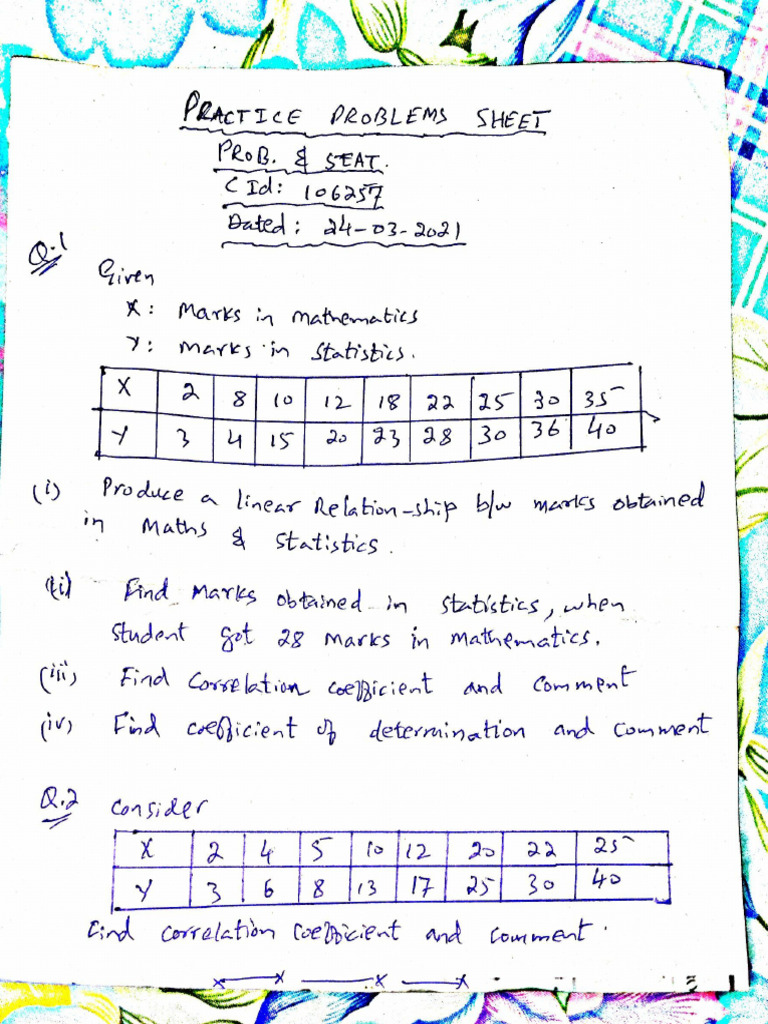 PRACTICE PROBLEMS SHEET
PROB. & STAT.
CId: 106257
Dated: 24-03-2021
Q.1
Given
X: Marks in mathematics
Y: Marks in Statistics.
X 2 8 10 12 18 22 25 30 35
Y 3 4 15 20 23 28 30 36 40
(i) Produce a linear Relation-ship b/w marks obtained
in Maths & Statistics.
(ii) Find Marks obtained in statistics, when
student got 28 marks in mathematics.
(iii) Find Correlation coefficient and comment
(iv) Find coefficient of determination and comment
Q.2 Consider
X 2 4 5 10 12 20 22 25
Y 3 6 8 13 17 25 30 40
Find correlation coefficient and comment.